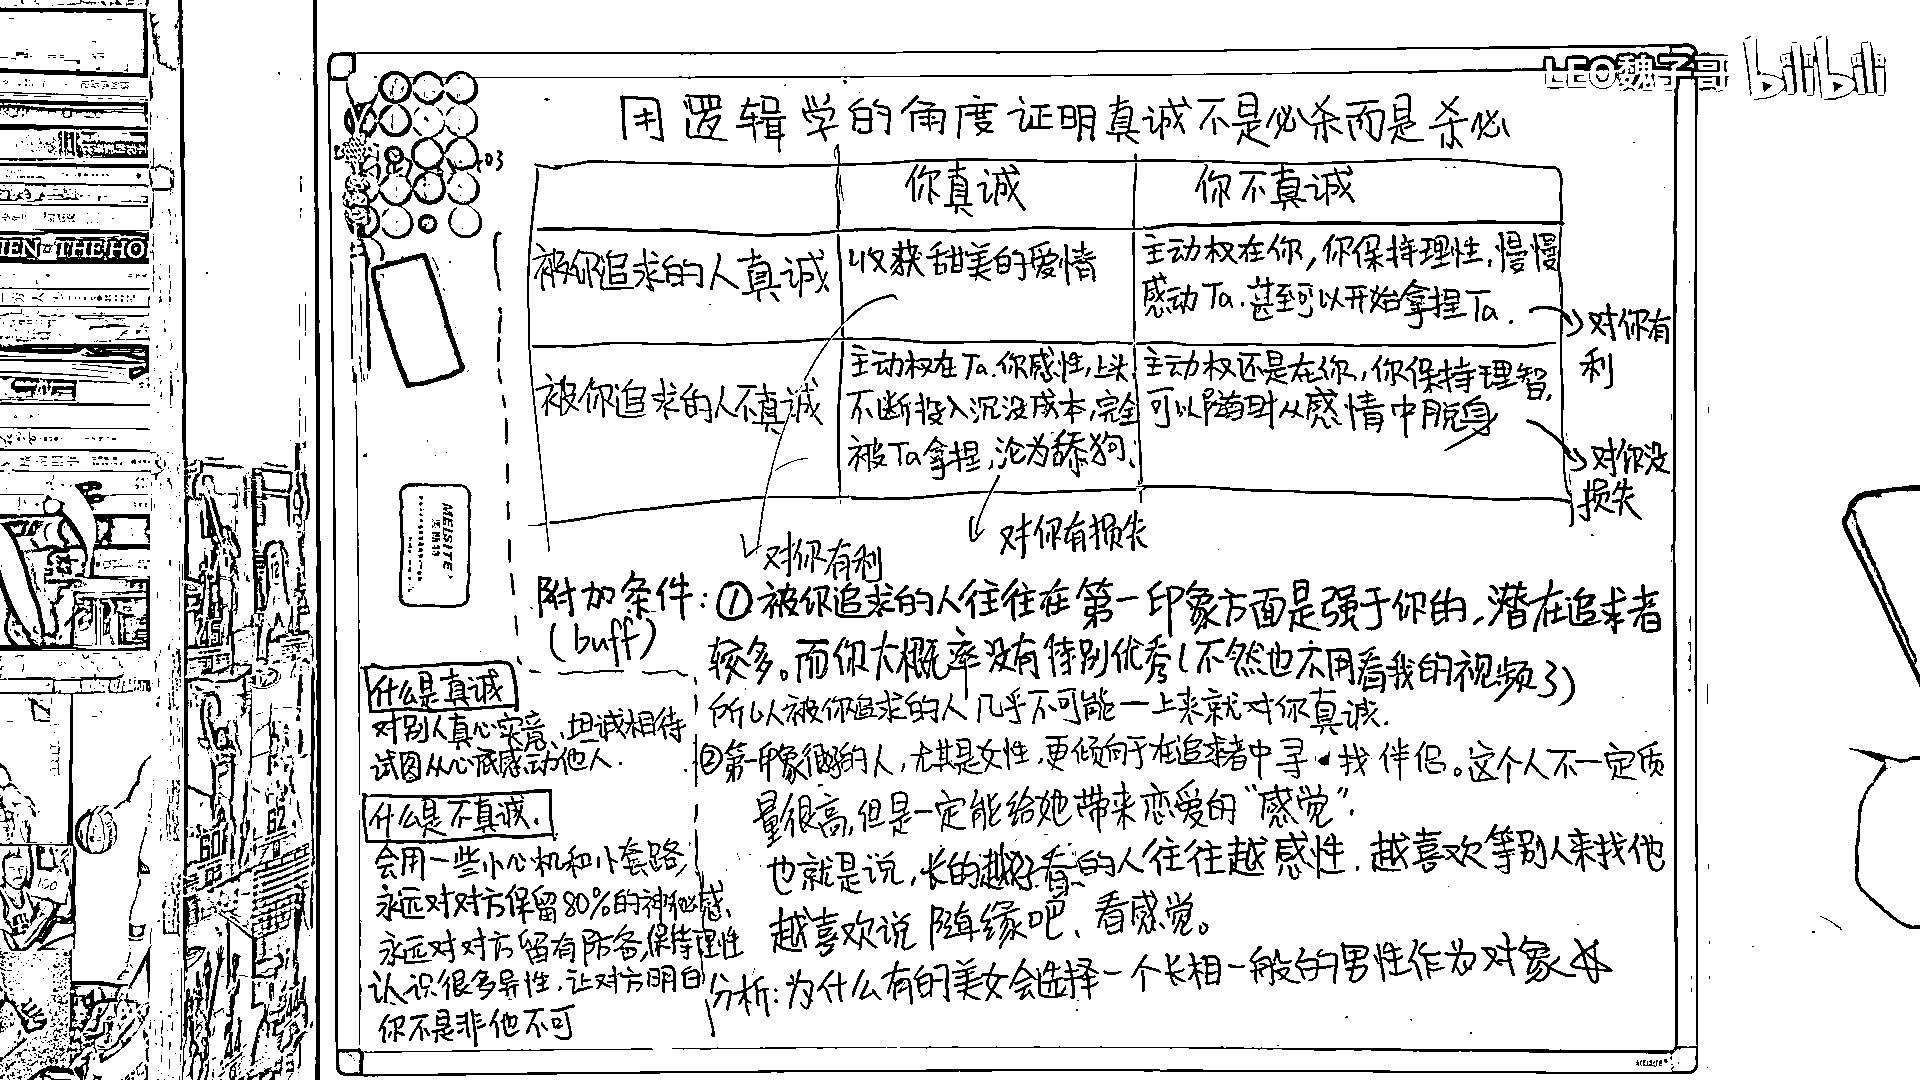 LEO魏子哥 bilibili
用逻辑学的角度证明真诚不是必杀而是杀必
你真诚
你不真诚
被你追求的人真诚
收获甜美的爱情
主动权在你,你保持理性,慢慢
感动Ta.甚至可以开始拿捏Ta.
对你有
利
被你追求的人不真诚
主动权在Ta.你感性,上头
不断投入沉没成本,完全
被Ta拿捏,沦为舔狗.
主动权还是在你,你保持理智,
可以随时从感情中脱身
对你没
损失
对你有利
对你有损失
附加条件:①被你追求的人往往在第一印象方面是强于你的,潜在追求者
(buff)
较多。而你大概率没有特别优秀(不然也不用看我的视频了)
所以被你追求的人几乎不可能一上来就对你真诚.
②第一印象很好的人,尤其是女性,更倾向于在追求者中寻找伴侣。这个人不一定质
量很高,但是一定能给她带来恋爱的“感觉”.
也就是说,长的越好看的人往往越感性.越喜欢等别人来找他
越喜欢说随缘吧、看感觉。
分析:为什么有的美女会选择一个长相一般的男性作为对象
什么是真诚
对别人真心实意、坦诚相待
试图从心底感动他人.
什么是不真诚.
会用一些小心机和小套路,
永远对对方保留80%的神秘感、
永远对对方留有防备,保持理性
认识很多异性,让对方明白
你不是非他不可
MEISITE
IEN THE HO